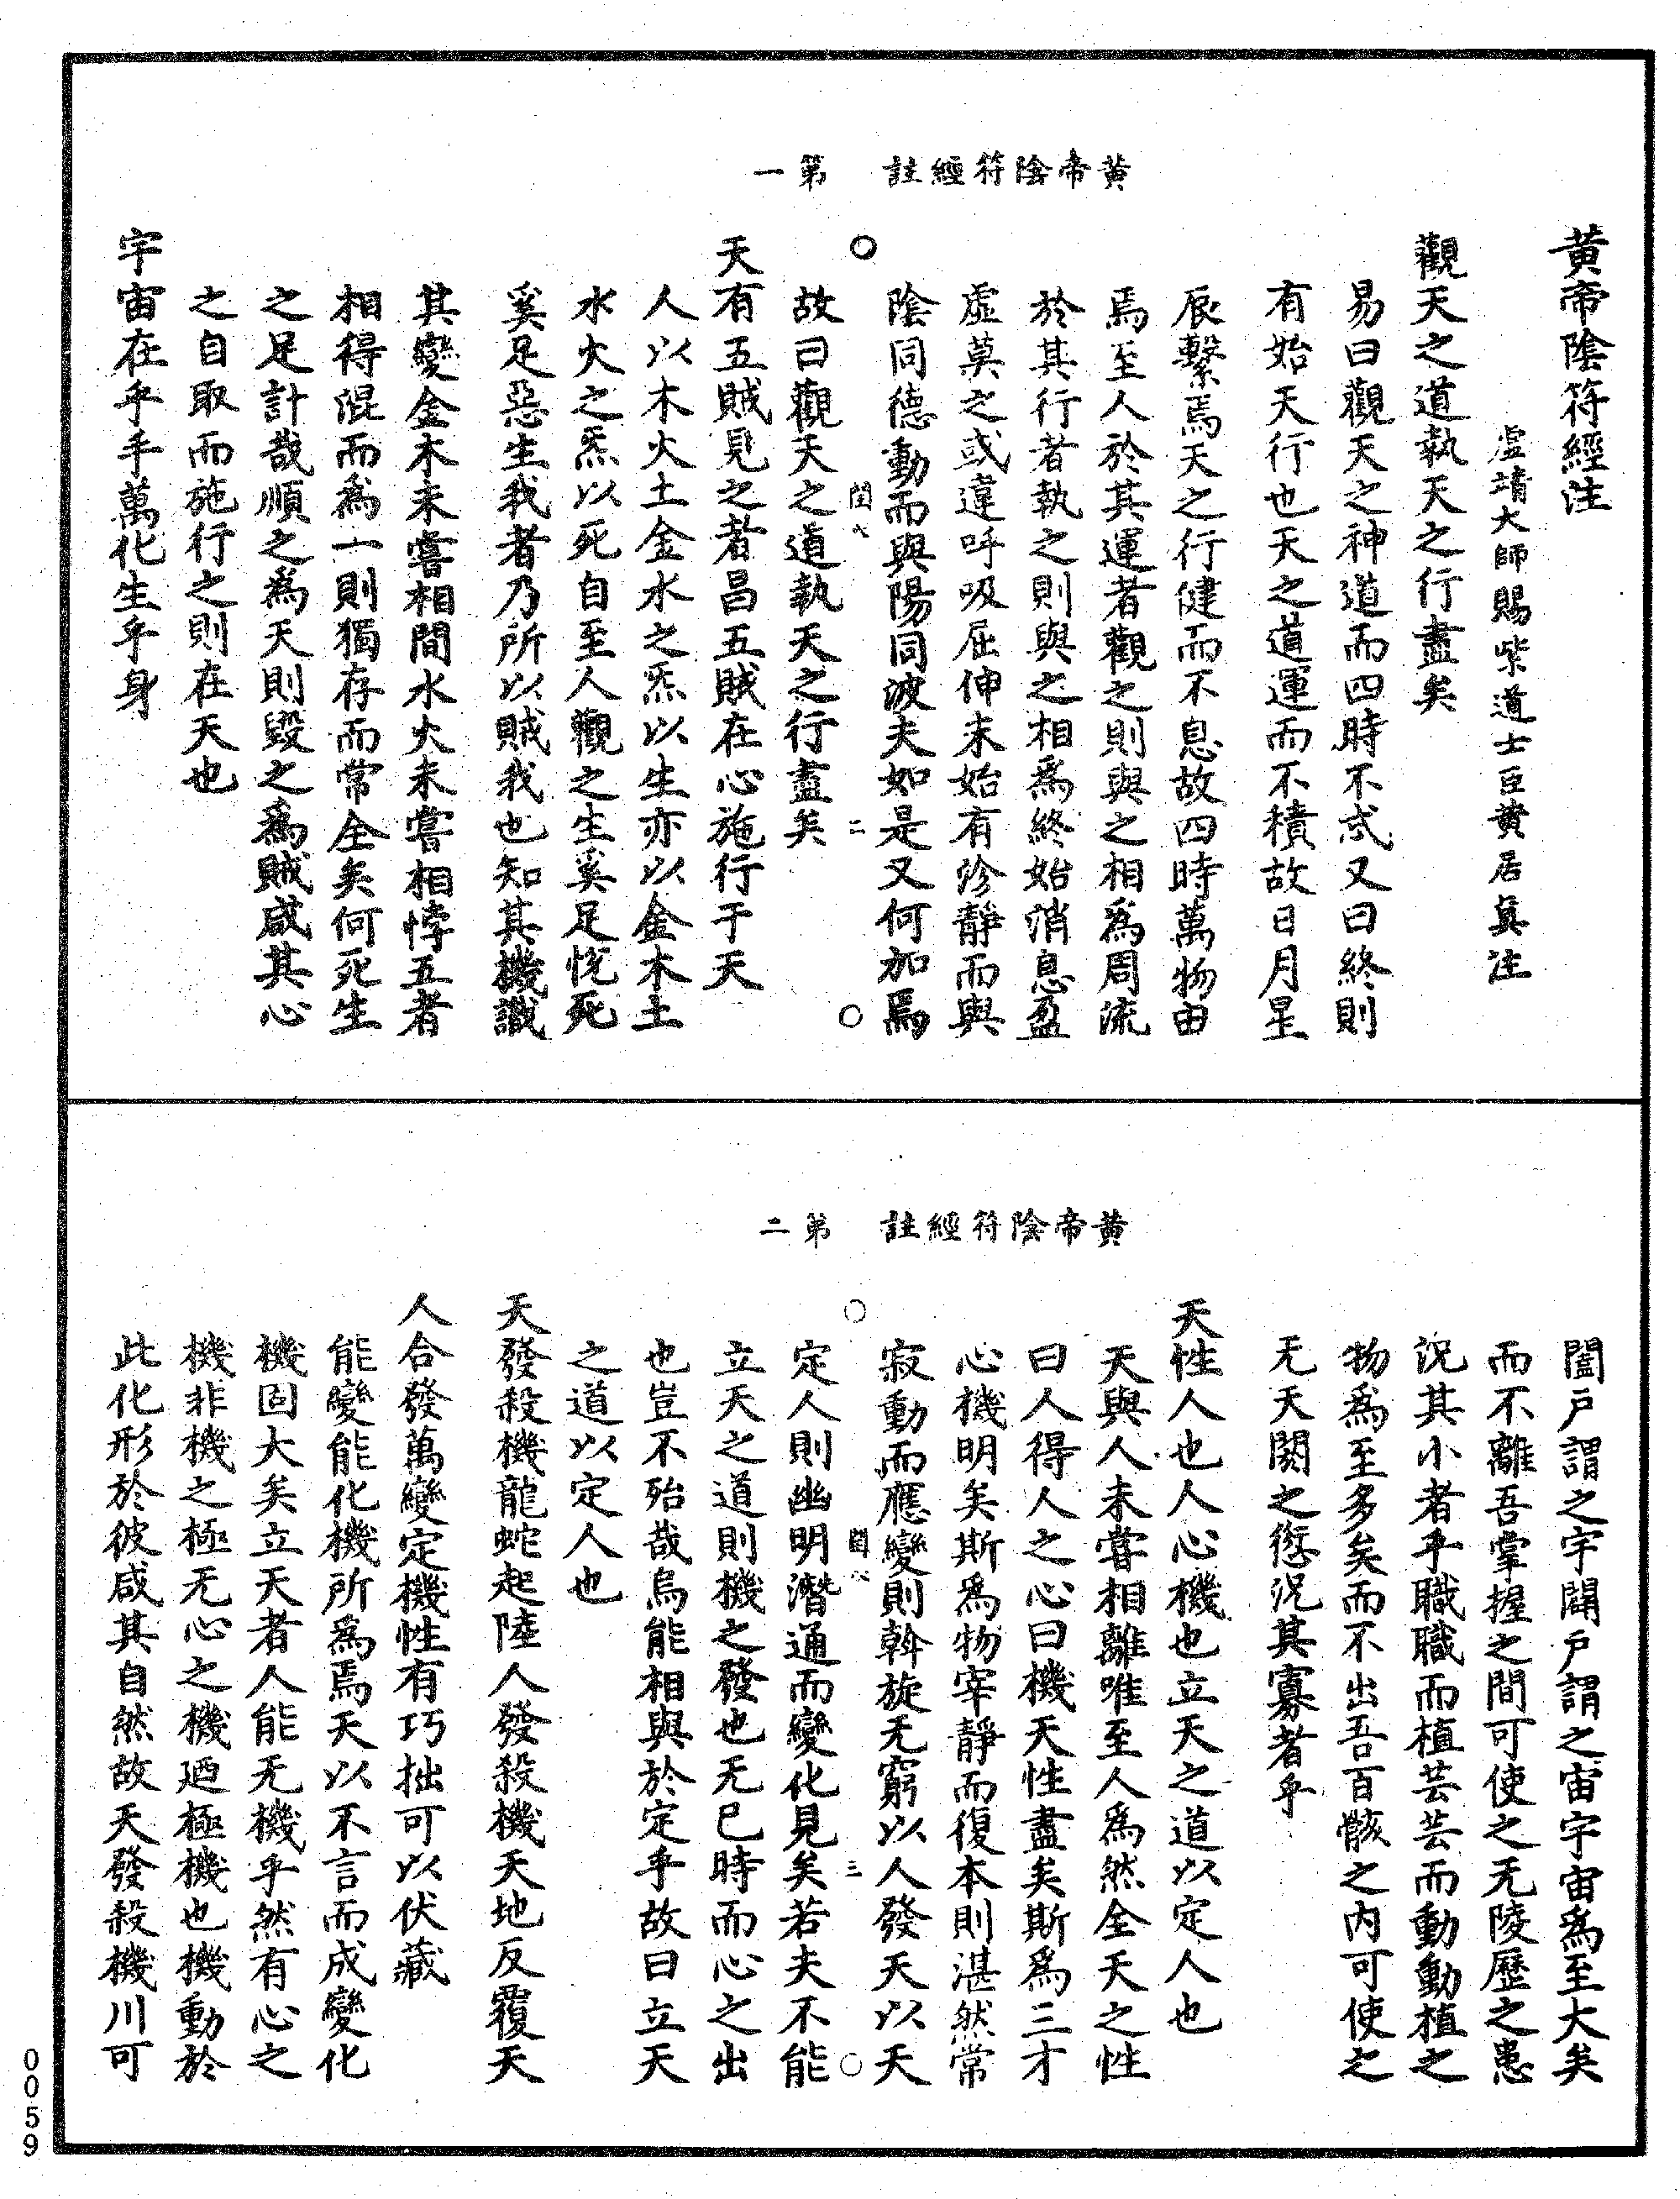 黃帝陰符經註　第一
黃帝陰符經注
虛靖大師賜紫道士臣黃居眞注
觀天之道執天之行盡矣
易曰觀天之神道而四時不忒又曰終則
有始天行也天之道運而不積故日月星
辰繫焉天之行健而不息故四時萬物由
焉至人於其運者觀之則與之相爲周流
於其行者執之則與之相爲終始消息盈
虛莫之或違呼吸屈伸未始有沴靜而與
陰同德動而與陽同波夫如是又何加焉
二
故曰觀天之道執天之行盡矣
天有五賊見之者昌五賊在心施行于天
人以木火土金水之炁以生亦以金木土
水火之炁以死自至人觀之生奚足悅死
奚足惡生我者乃所以賊我也知其機識
其變金木未嘗相間水火未嘗相悖五者
相得混而爲一則獨存而常全矣何死生
之足計哉順之爲天則毀之爲賊咸其心
之自取而施行之則在天也
宇宙在乎手萬化生乎身
黃帝陰符經註　第二
闔戶謂之宇闢戶謂之宙宇宙爲至大矣
而不離吾掌握之間可使之无陵歷之患
況其小者乎職職而植芸芸而動動植之
物爲至多矣而不出吾百骸之內可使之
无夭閼之愆況其寡者乎
天性人也人心機也立天之道以定人也
天與人未嘗相離唯至人爲然全天之性
曰人得人之心曰機天性盡矣斯爲三才
心機明矣斯爲物宰靜而復本則湛然常
寂動而應變則斡旋无窮以人發天以天
三
定人則幽明潛通而變化見矣若夫不能
立天之道則機之發也无已時而心之出
也豈不殆哉烏能相與於定乎故曰立天
之道以定人也
天發殺機龍蛇起陸人發殺機天地反覆天
人合發萬變定機性有巧拙可以伏藏
能變能化機所爲焉天以不言而成變化
機固大矣立天者人能无機乎然有心之
機非機之極无心之機廼極機也機動於
此化形於彼咸其自然故天發殺機川可
0059